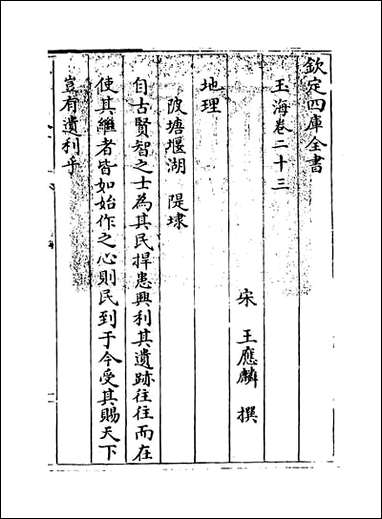 欽定四庫全書
玉海卷二十三
宋 王應麟 撰
地理
陂塘堰湖 隄埭
自古賢智之士為其民捍患興利其遺跡往往而在
使其繼者皆如始作之心則民到于今受其賜天下
豈有遺利乎